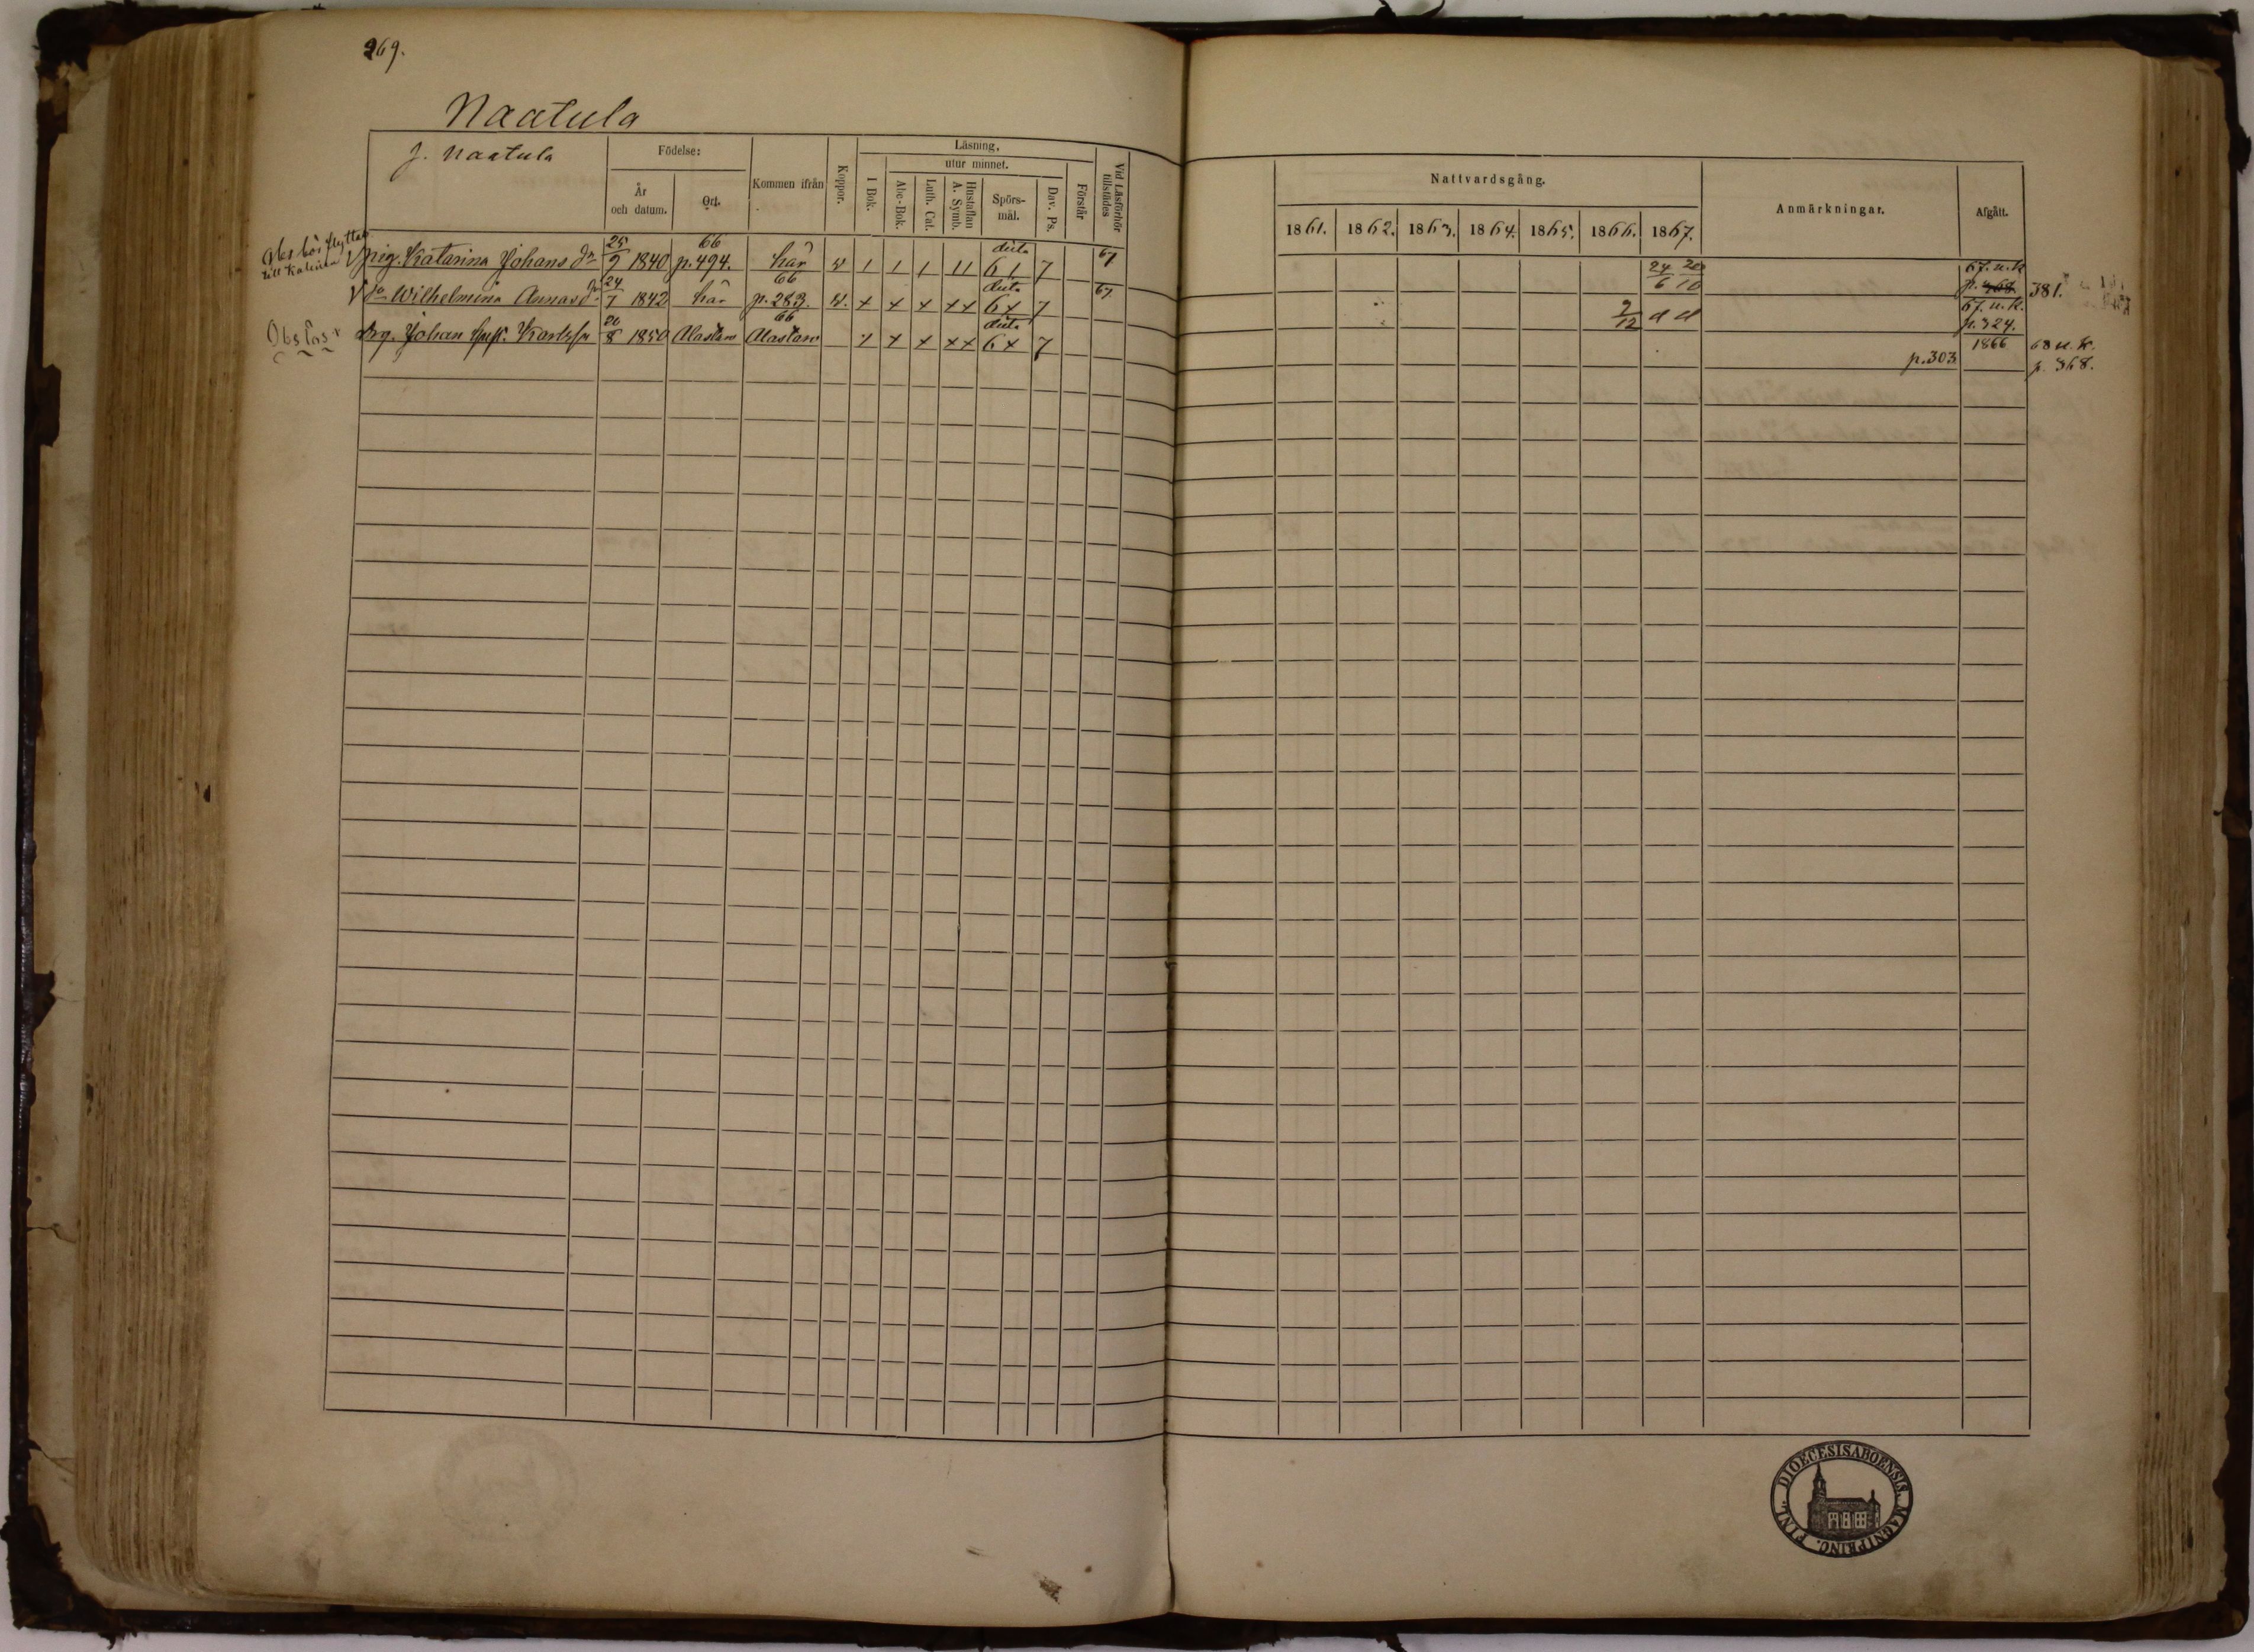 269.
Naatula
J. Naatula
Födelse:
År och datum.
Ort.
Kommen ifrån
Koppor.
Läsning,
I Bok.
utur minnet.
Abc-Bok.
Luth. Cat.
Hustaflan A. Symb.
Spörs-mål.
Dav. Ps.
Förstår
Vid Läsförhör tillstädes
Nattvardsgång.
1861. 1862. 1863. 1864. 1865. 1866. 1867.
Anmärkningar.
Afgått.
flyttas till
V pig. Katarina Johans dr 25/9 1840 66 p. 494. här 1 1 1 11 61 7 67 24/6 20/10 67. u. k p. 381.
V Wilhelmina Annas dr 24/7 1842 här 66 p. 283. + + + ++ 6+ 7 67 2/12 67. u. k. p. 324.
Obs
Drg. Johan Karlsson 26/8 1850 Alastaro 66 Alastaro + + ++ 6+ 7 p. 303 1866 68 u. k. p. 368.
FINL. DIOECESIS ABOENSIS. MAGNI PRINC.